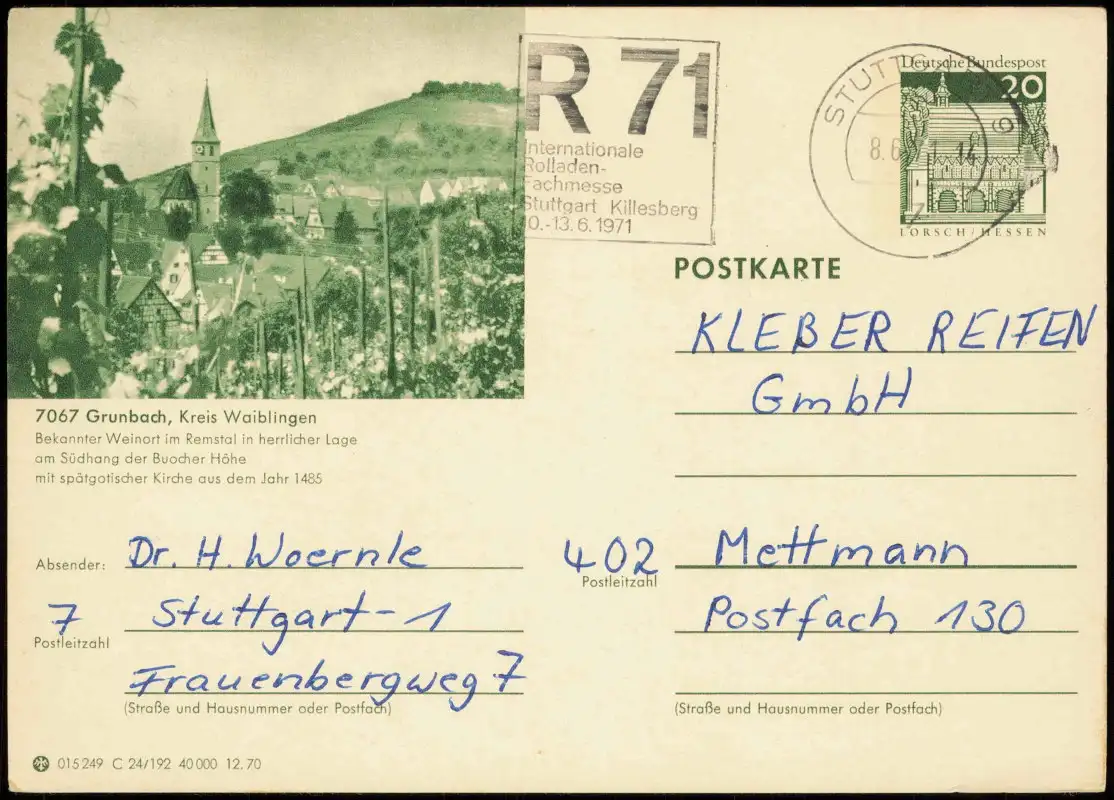 R 71
Internationale
Rolladen-
Fachmesse
Stuttgart Killesberg
10.-13.6.1971
STUTTG
8.6
14
Deutsche Bundespost
20
LORSCH/HESSEN
POSTKARTE
KLEBER REIFEN
GmbH
7067 Grunbach, Kreis Waiblingen
Bekannter Weinort im Remstal in herrlicher Lage
am Südhang der Buocher Höhe
mit spätgotischer Kirche aus dem Jahr 1485
Absender: Dr. H. Woernle
7 Stuttgart-1
Postleitzahl
Frauenbergweg 7
(Straße und Hausnummer oder Postfach)
402 Mettmann
Postleitzahl
Postfach 130
(Straße und Hausnummer oder Postfach)
015249 C 24/192 40000 12.70